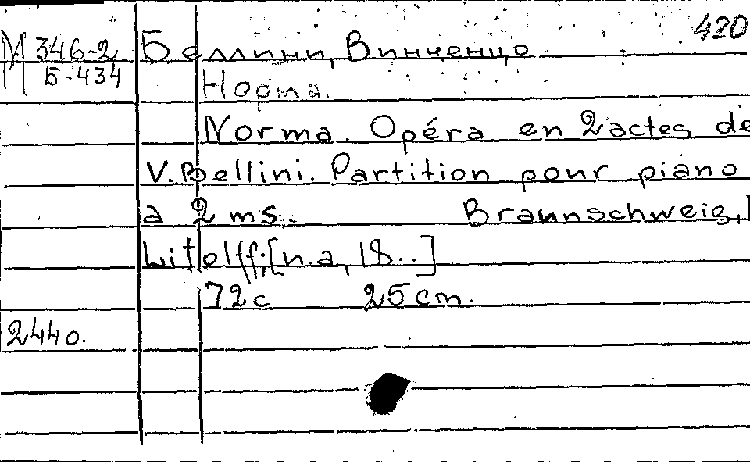 420
М 346-2 Беллини, Винченцо
Б-434
Норма.
Norma. Opéra en 2 actes de
V. Bellini. Partition pour piano
a 2 ms. Braunschweig,
Litolff,[n.a, 18..]
72 c 25 cm.
2440.